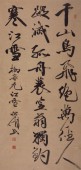 千山鳥飛絕萬徑人
蹤滅孤舟蓑笠翁獨釣
寒江雪 柳宗元江雪